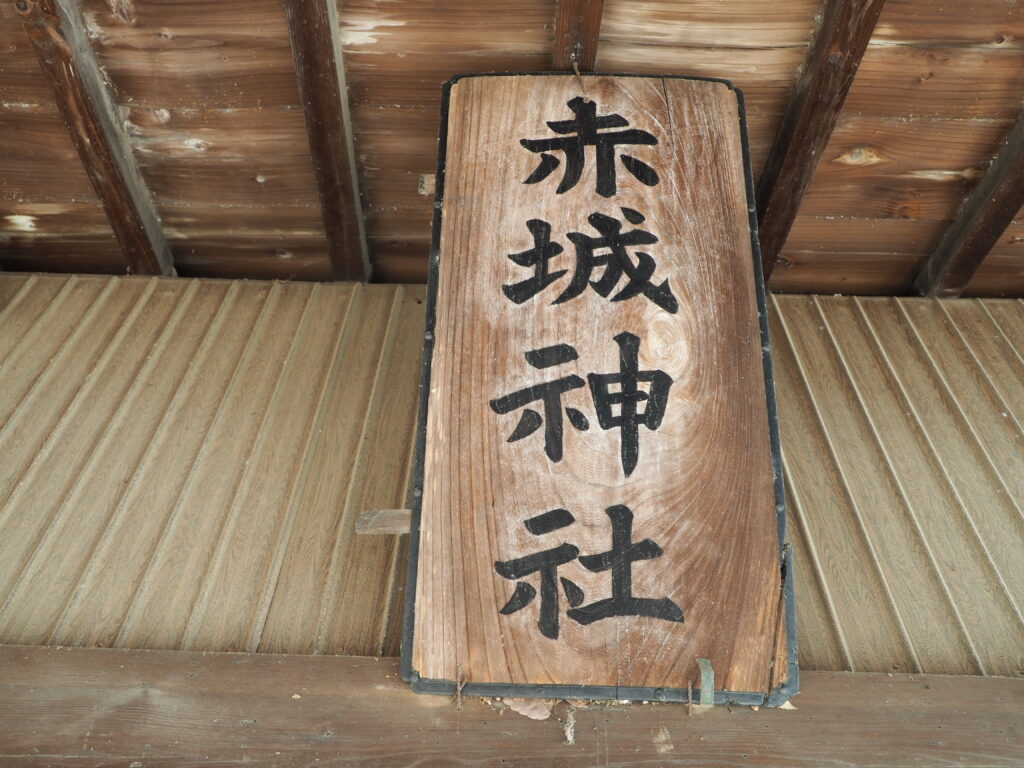 赤城神社